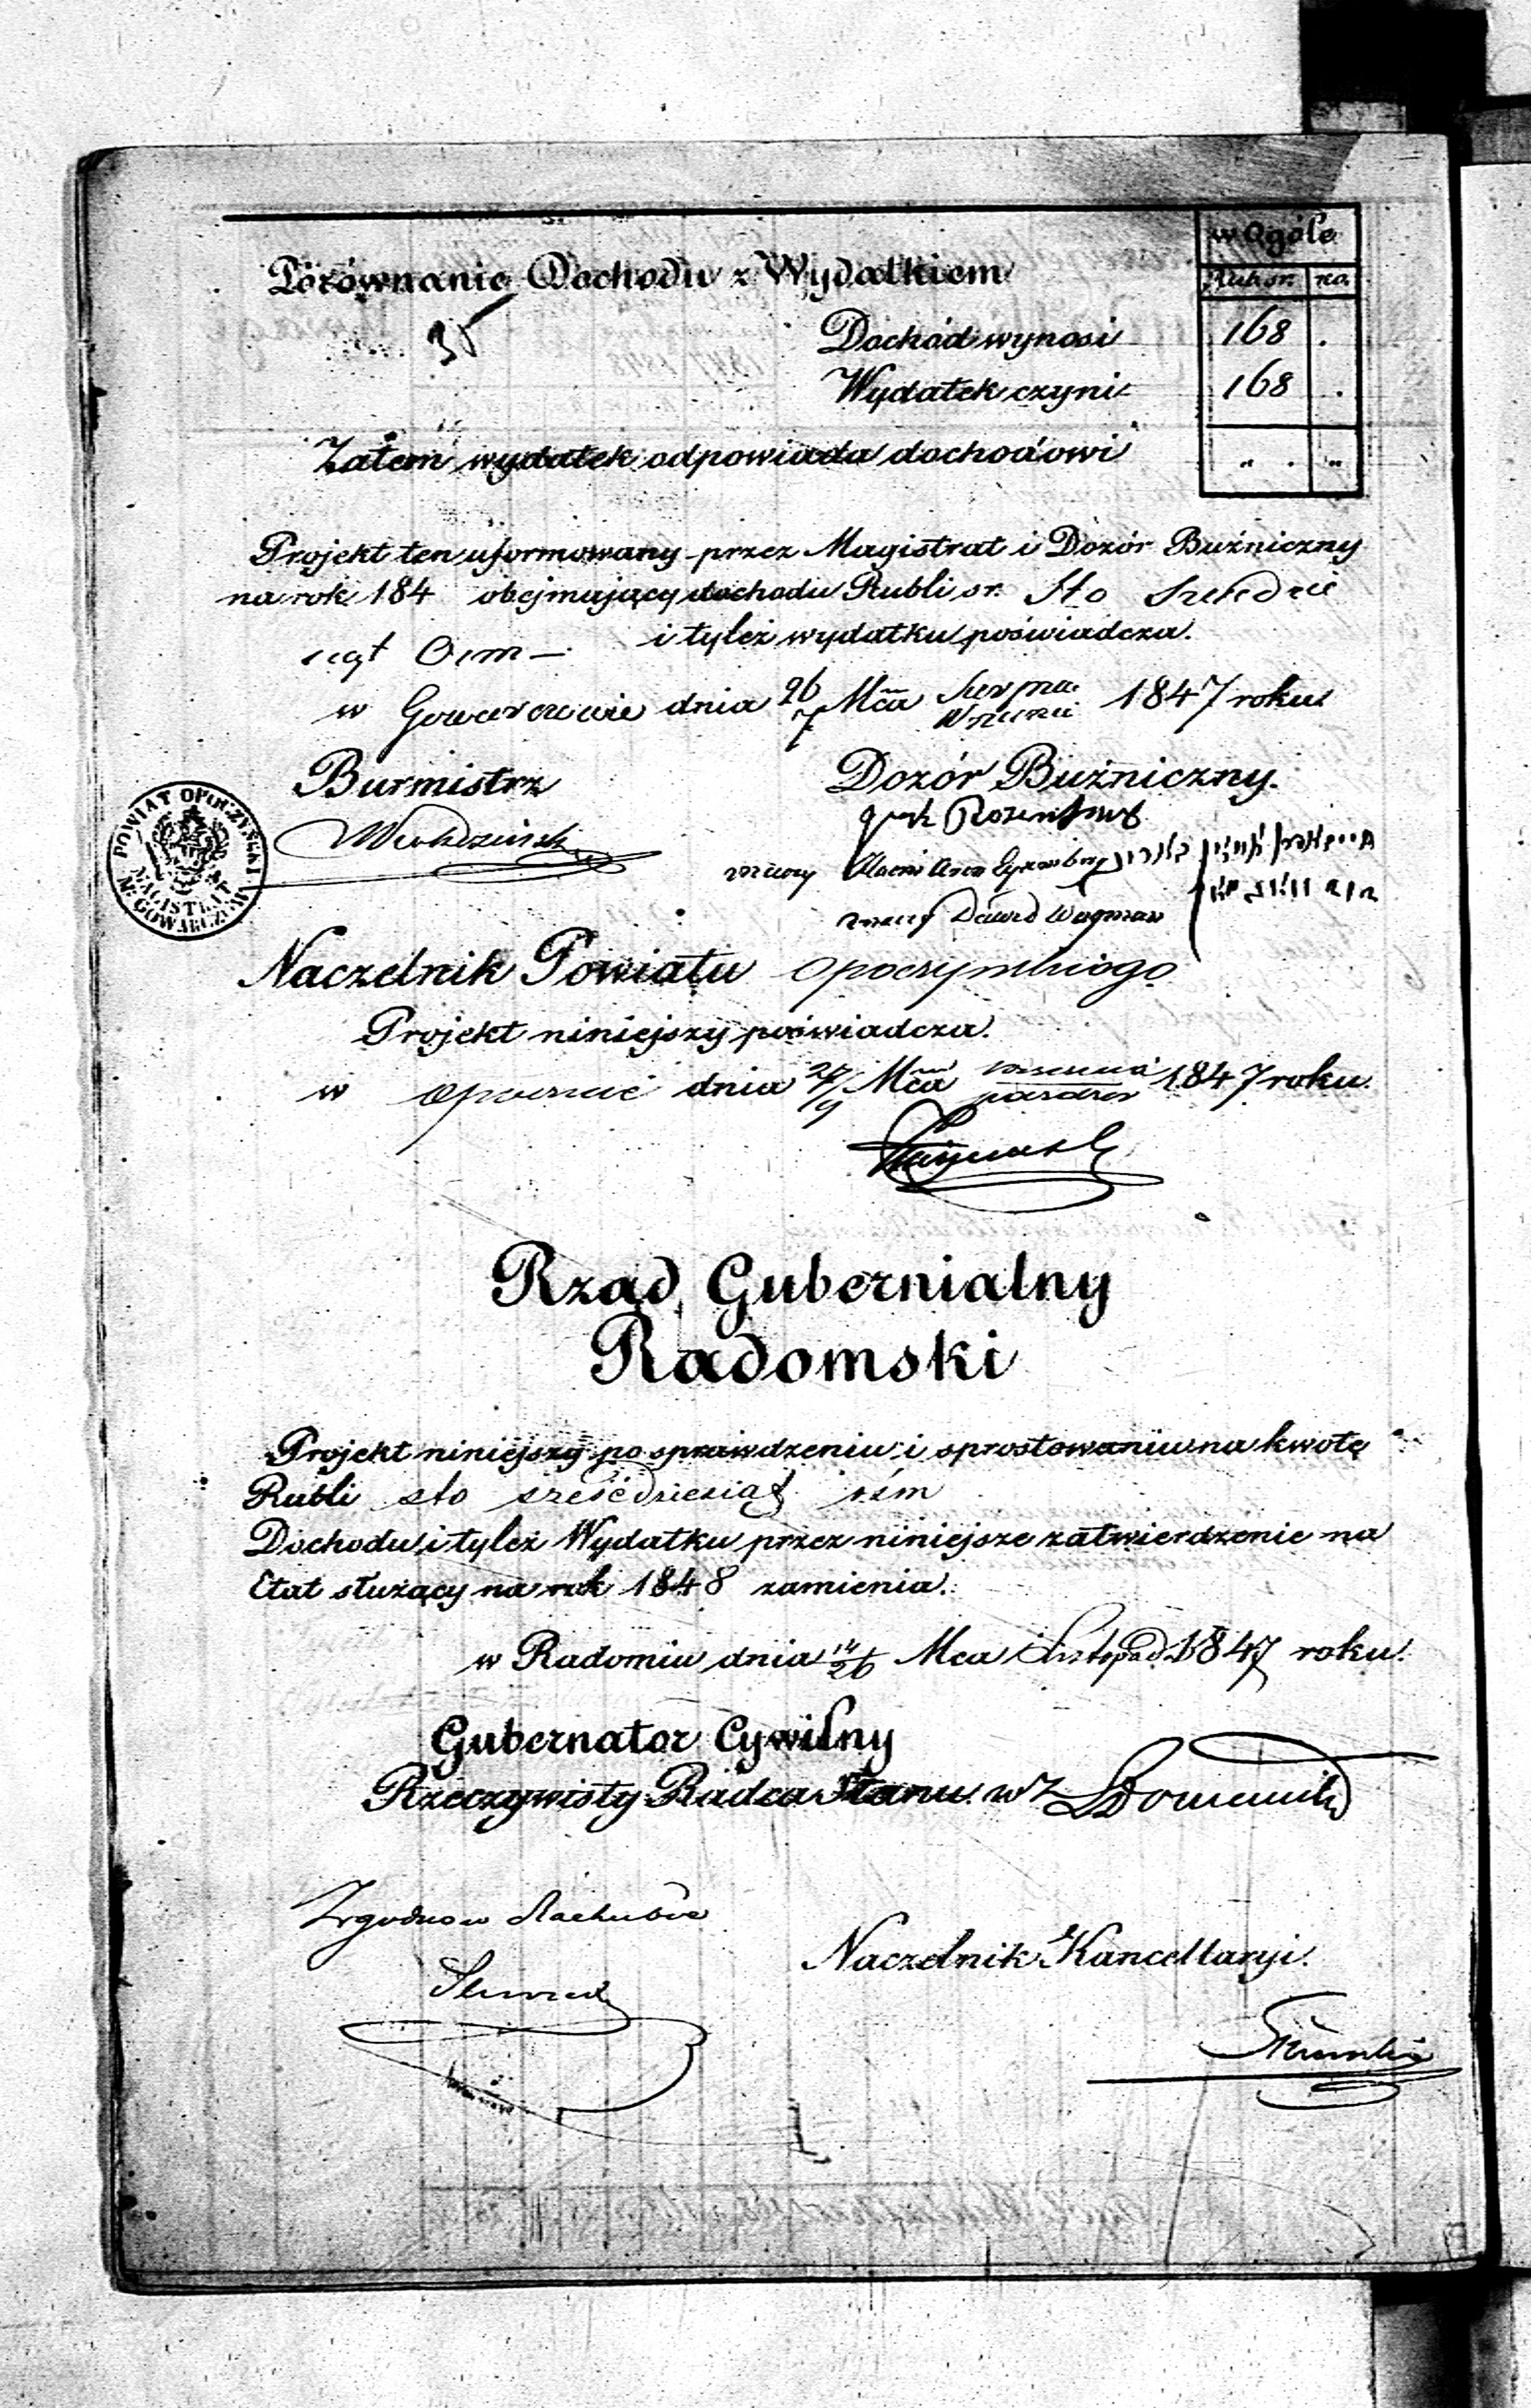 w Ogóle
Rub. sr. ko.
Porównanie Dochodu z Wydatkiem
35
Dochód wynosi 168 .
Wydatek czyni 168 .
Zatem wydatek odpowiada dochodowi " . "
Projekt ten uformowany przez Magistrat i Dozór Buźniczny
na rok 184 obejmujący dochodu Rubli sr. Sto Sześdzie
siąt Osm —
i tyleż wydatku poświadcza.
w Gowarczowie dnia 26/7 Mca Sierpnia Września 1847 roku
Burmistrz Dozór Buźniczny.
POWIAT OPOCZYŃSKI
MAGISTRAT
M. GOWARCZÓW
Dawid Wagman
Naczelnik Powiatu Opoczyńskiego
Projekt niniejszy poświadcza.
w Opocznie dnia 27/9 Mca września paździer 1847 roku.
Rząd Gubernialny
Radomski
Projekt niniejszy po sprawdzeniu i sprostowaniu na kwotę
Rubli sto sześćdziesiąt ośm
Dochodu i tyleż Wydatku przez niniejsze zatwierdzenie na
Etat służący na rok 1848 zamienia.
w Radomiu dnia 14/26 Mca Listopad. 1847 roku.
Gubernator Cywilny
Rzeczywisty Radca Stanu. wz
Zgodno w Rachubie
Naczelnik Kancellaryi.